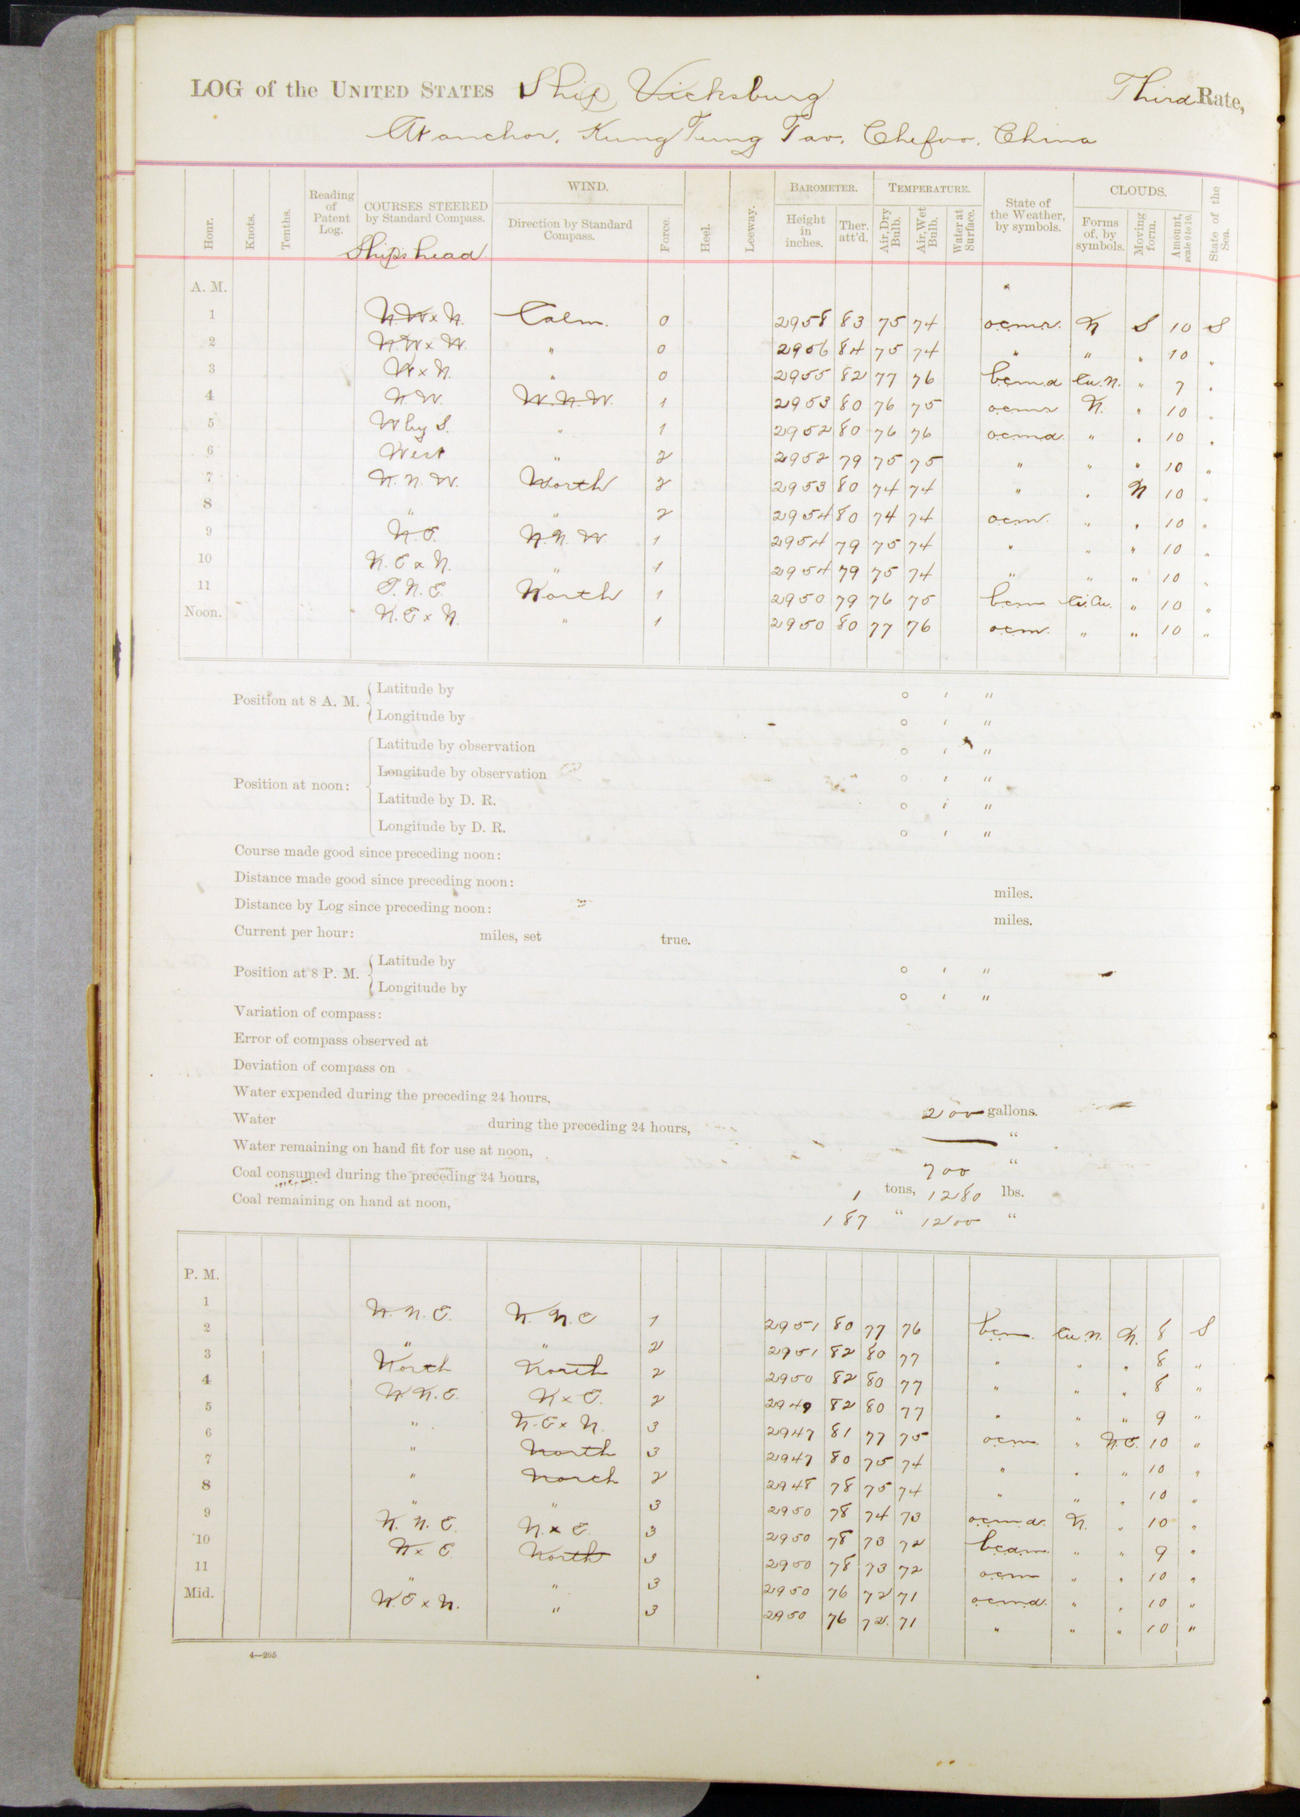 LOG of the UNITED STATES Ship Vicksburg Third Rate,
At anchor, Kung Tung Tao, Chefoo, China
Hour. Knots. Tenths. Reading of Patent Log. COURSES STEERED by Standard Compass. WIND. Direction by Standard Compass. Force. Heel. Leeway. BAROMETER. Height in inches. Ther. att'd. TEMPERATURE. Air, Dry Bulb. Air, Wet Bulb. Water at Surface. State of the Weather, by symbols. CLOUDS. Forms of, by symbols. Moving form. Amount, scale 0 to 10. State of the Sea.
Ship's head
A. M.
1 N.W x N. Calm. 0 2958 83 75 74 o.c.m.r. N S 10 S
2 N.W x W. " 0 2956 84 75 74 " " " 10 "
3 W x N. " 0 2955 82 77 76 b.c.m.d Cu.N. " 7 "
4 N.W. W.N.W. 1 2953 80 76 75 o.c.m.r N. " 10 "
5 W by S. " 1 2952 80 76 76 o.c.m.d " " 10 "
6 West " 2 2952 79 75 75 " " " 10 "
7 N.N.W. North 2 2953 80 74 74 " " N 10 "
8 " " 2 2954 80 74 74 o.c.m. " " 10 "
9 N.E. N.N.W 1 2954 79 75 74 " " " 10 "
10 N.E x N. " 1 2954 79 75 74 " " " 10 "
11 E.N.E. North 1 2950 79 76 75 b.c.m Ci.Cu. " 10 "
Noon. N.E x N. " 1 2950 80 77 76 o.c.m. " " 10 "
Position at 8 A. M. Latitude by ° ' "
Longitude by ° ' "
Position at noon: Latitude by observation ° ' "
Longitude by observation ° ' "
Latitude by D. R. ° ' "
Longitude by D. R. ° ' "
Course made good since preceding noon:
Distance made good since preceding noon: miles.
Distance by Log since preceding noon: miles.
Current per hour: miles, set true.
Position at 8 P. M. Latitude by ° ' "
Longitude by ° ' "
Variation of compass:
Error of compass observed at
Deviation of compass on
Water expended during the preceding 24 hours, 200 gallons.
Water during the preceding 24 hours, — "
Water remaining on hand fit for use at noon, 700 "
Coal consumed during the preceding 24 hours, 1 tons, 1280 lbs.
Coal remaining on hand at noon, 187 " 1200 "
P. M.
1 N.N.E. N.N.E 1 2951 80 77 76 b.c.m. Cu.N. N. 8 S
2 " " 2 2951 82 80 77 " " " 8 "
3 North North 2 2950 82 80 77 " " " 8 "
4 N.N.E. N x E. 2 2949 82 80 77 " " " 9 "
5 " N.E x N. 3 2947 81 77 75 o.c.m " N.E. 10 "
6 " North 3 2947 80 75 74 " " " 10 "
7 " North 2 2948 78 75 74 " " " 10 "
8 " " 3 2950 78 74 73 o.c.m.d. N. " 10 "
9 N.N.E. N. x E. 3 2950 78 73 72 b.c.d.m. " " 9 "
10 N x E. North 3 2950 78 73 72 o.c.m " " 10 "
11 " " 3 2950 76 72 71 o.c.m.d. " " 10 "
Mid. N.E x N. " 3 2950 76 72. 71 " " " 10 "
4—265